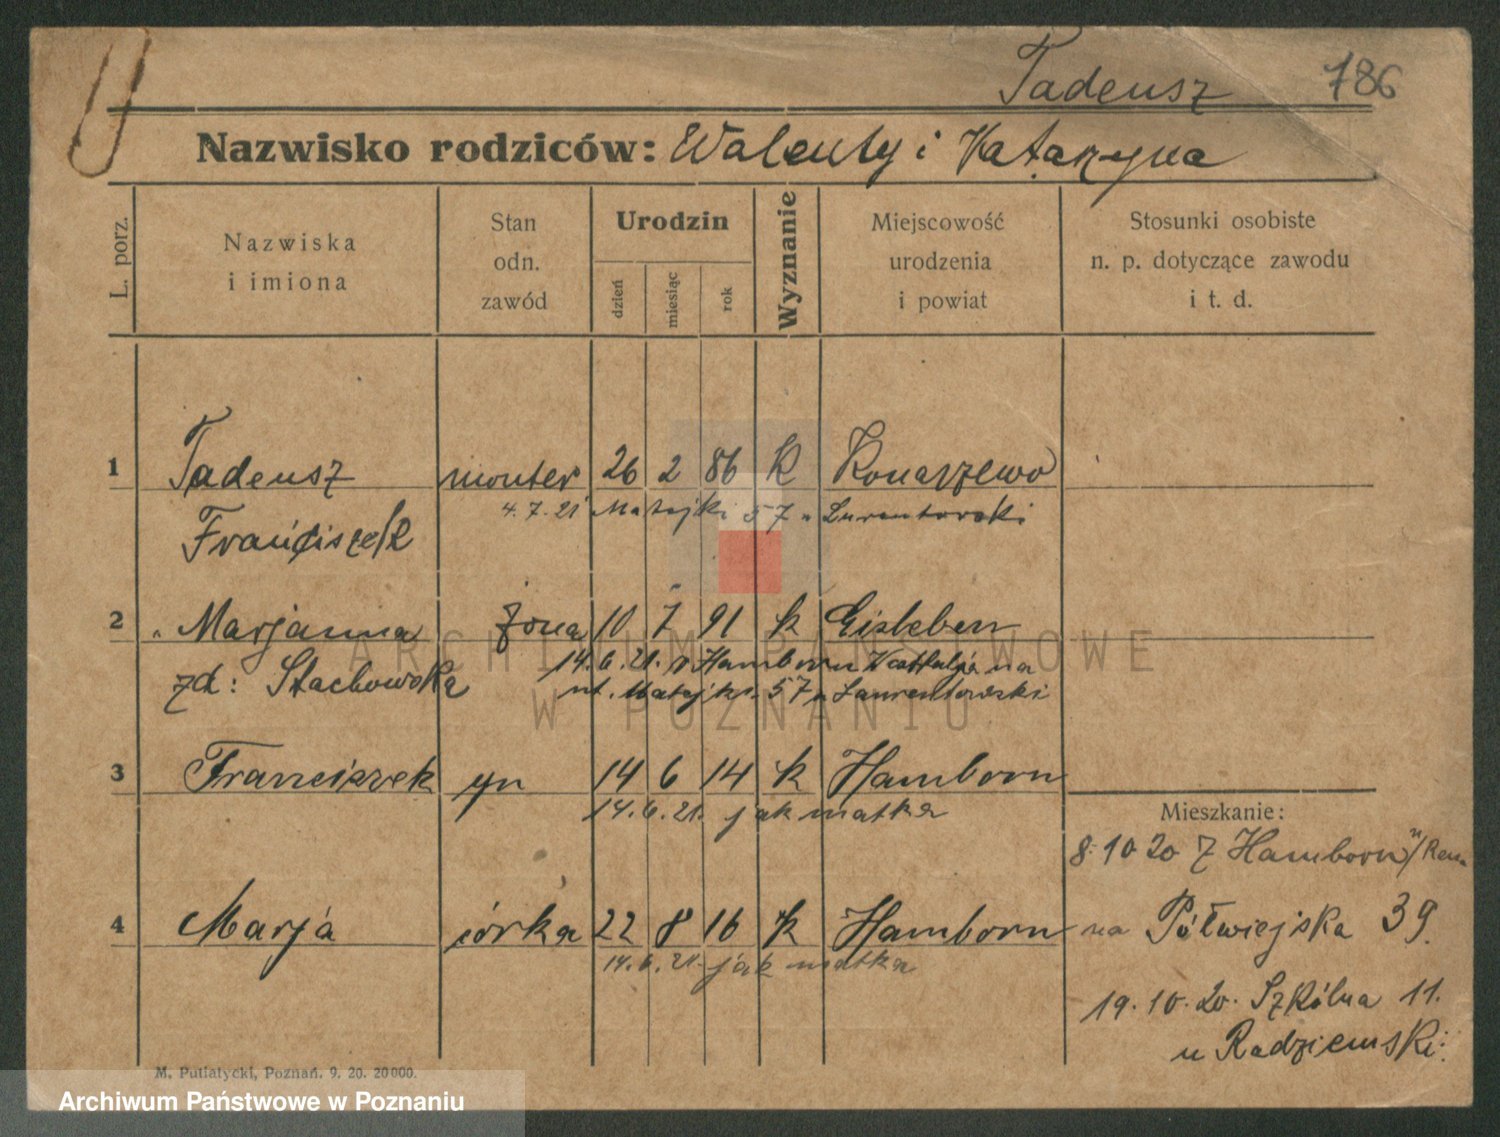 Tadeusz 786
Nazwisko rodziców: Walenty i Katarzyna
L. porz.
Nazwiska
i imiona
Stan
odn.
zawód
Urodzin
dzień
miesiąc
rok
Wyznanie
Miejscowość
urodzenia
i powiat
Stosunki osobiste
n. p. dotyczące zawodu
i t. d.
1 Tadeusz monter 26 2 86 K Konarzewo
4.7.21 Matejki 57 u Lurentowski
Franciszek
2 Marjanna żona 10 7 91 k Eisleben
zd: Stachowska
14.6.21. Hamborn na
ul. Matejki 57 u Laurentowski
3 Franciszek yn 14 6 14 k Hamborn
14.6.21. jak matka
Mieszkanie:
8.10 20 Z Hamborn
4 Marja córka 22 8 16 k Hamborn
14.6.21. jak matka
na Półwiejska 39.
19.10.20. Szkólna 11.
u Radziemski.
M. Putiatycki, Poznań. 9. 20. 20000.
ARCHIWUM PAŃSTWOWE
W POZNANIU
Archiwum Państwowe w Poznaniu